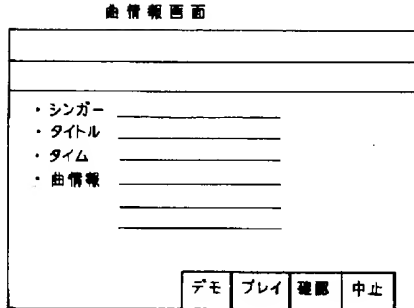 曲情報画面
・シンガー
・タイトル
・タイム
・曲情報
デモ プレイ 確認 中止